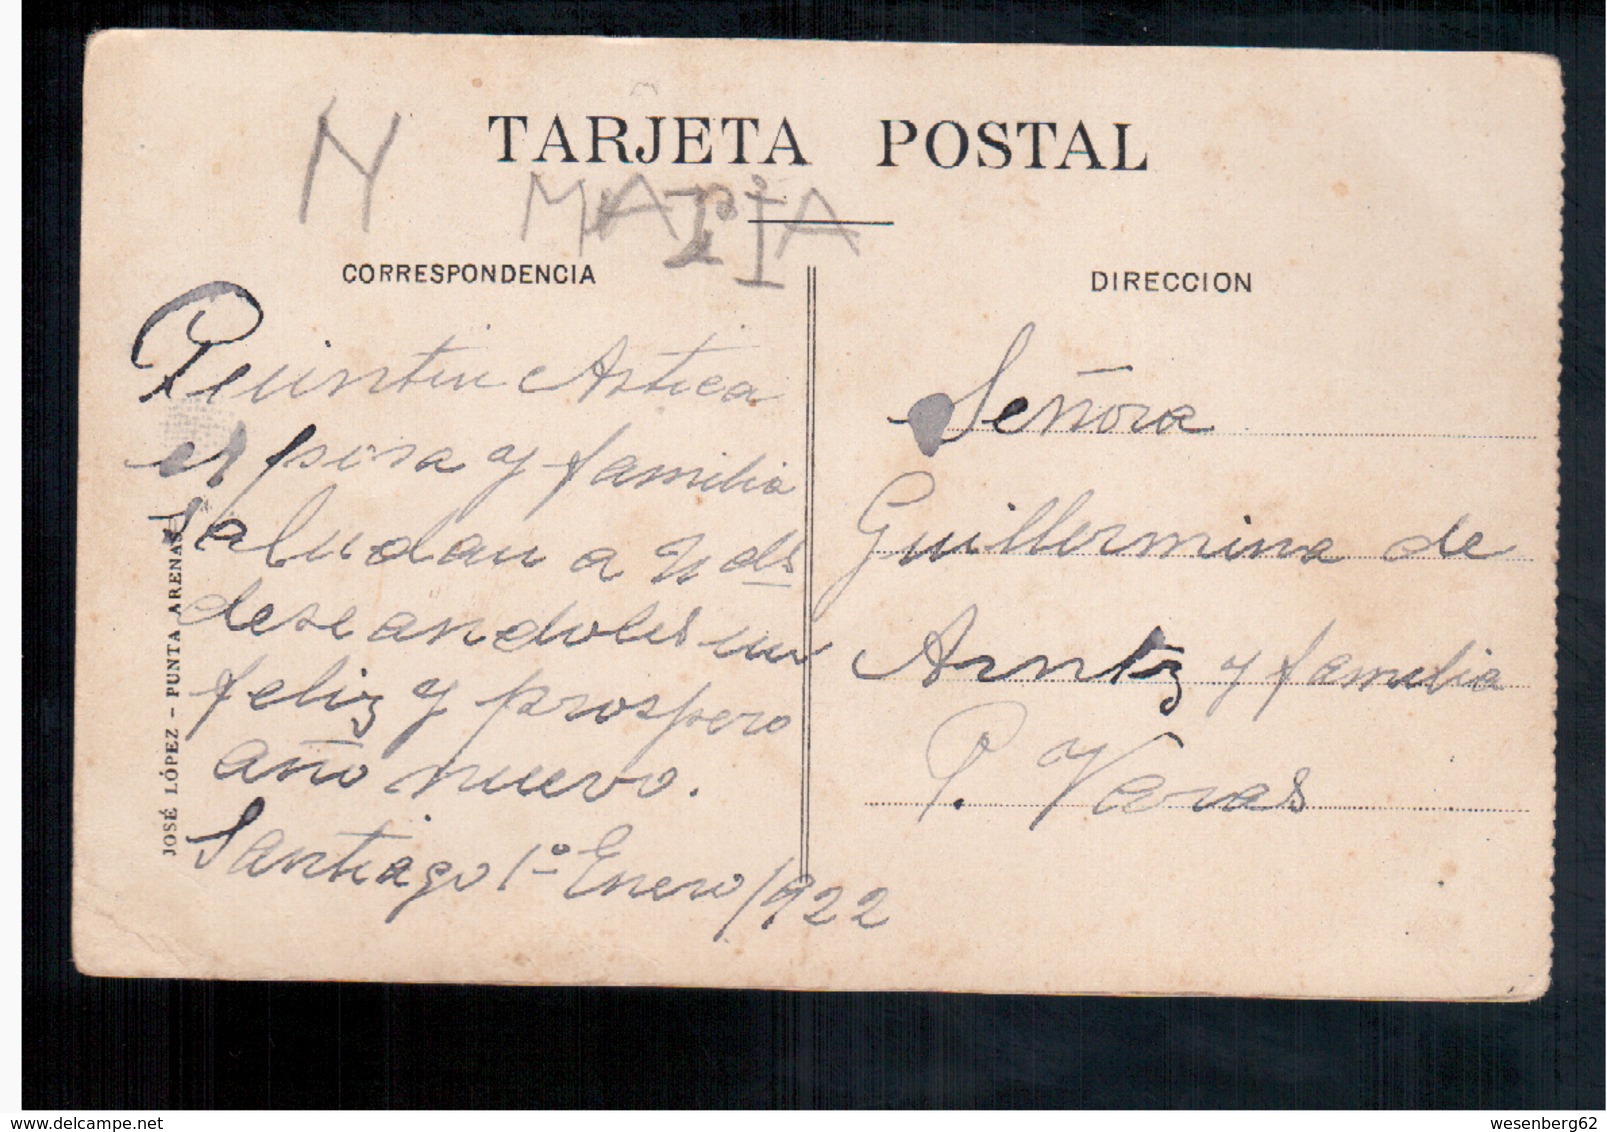 TARJETA POSTAL
N
MARIA
CORRESPONDENCIA
Quintin Astica
esposa y familia
saludan a Uds
deseandoles un
feliz y prospero
año nuevo.
Santiago 1º Enero 1922
JOSÉ LÓPEZ – PUNTA ARENAS
DIRECCION
Señora
Guillermina de
Arntz y familia
P. Varas
www.delcampe.net
wesenberg62